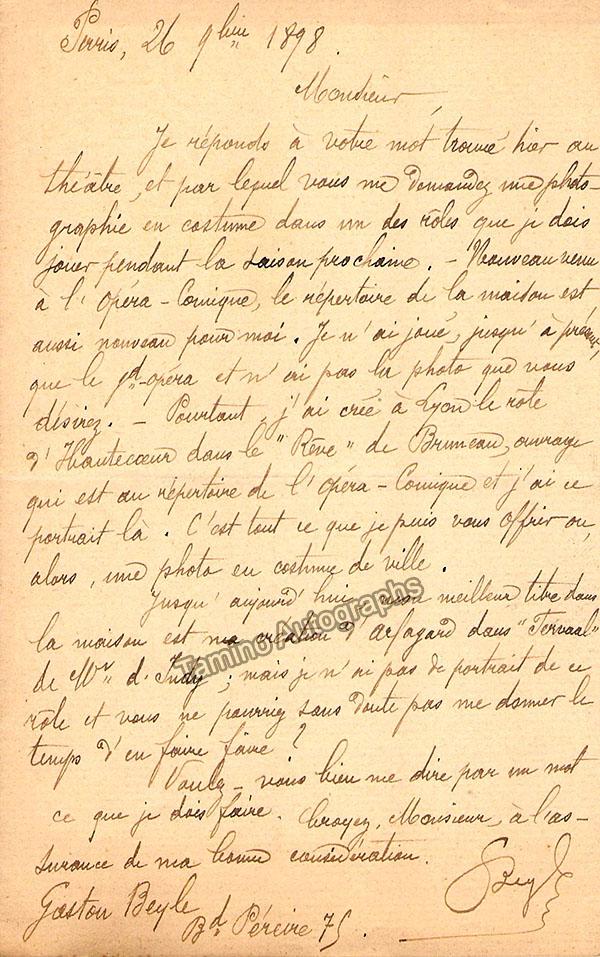 Paris, 26 9bre 1898.
Monsieur,
Je réponds à votre mot trouvé hier au
théâtre, et par lequel vous me demandez une photo-
graphie en costume dans un des rôles que je dois
jouer pendant la saison prochaine. - Nouveau venu
à l'Opéra-Comique, le répertoire de la maison est
aussi nouveau pour moi. Je n'ai joué, jusqu'à présent,
que le gd-opéra et n'ai pas la photo que vous
désirez. - Pourtant, j'ai créé à Lyon le rôle
d'Hautecœur dans le "Rêve" de Bruneau, ouvrage
qui est au répertoire de l'Opéra-Comique et j'ai ce
portrait là. C'est tout ce que je puis vous offrir ou,
alors, une photo en costume de ville.
Jusqu'aujourd'hui, mon meilleur titre dans
la maison est ma création d'Arfagard dans "Fervaal"
de Mr d'Indy; mais je n'ai pas de portrait de ce
rôle et vous ne pourriez sans doute pas me donner le
temps d'en faire faire?
Voulez-vous bien me dire par un mot
ce que je dois faire. Croyez, Monsieur, à l'as-
surance de ma bonne considération.
Beyle
Gaston Beyle
Bd Péreire 75.
Tamino Autographs